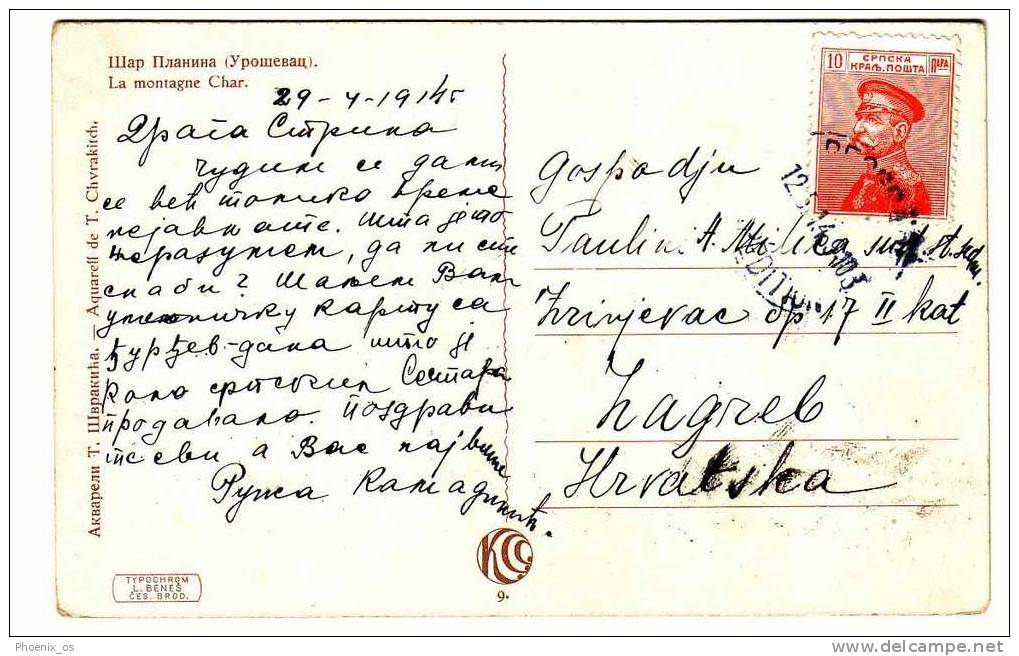 Шар Планина (Урошевац).
La montagne Char.
Акварели Т. Швракића. — Aquarell de T. Chvrakitch.
Драга Стрина
чудим се да ми
се већ толико време
не јављате. Шта је
не разумем, да ли сте
слаби? Шаљем Вам
уметничку карту са
Ђурђев-дана што је
Коло српских Сестара
продавало. Поздрави
те сви а Вас највише
Ружа
10 СРПСКА ПАРА
КРАЉ. ПОШТА
Gospodju
Paulini A.
Zrinjevac br 17 II kat
Zagreb
Hrvatska
KCC
9.
TYPOCHROM
L. BENEŠ
ČES. BROD.
Phoenix_os
delcampe.net